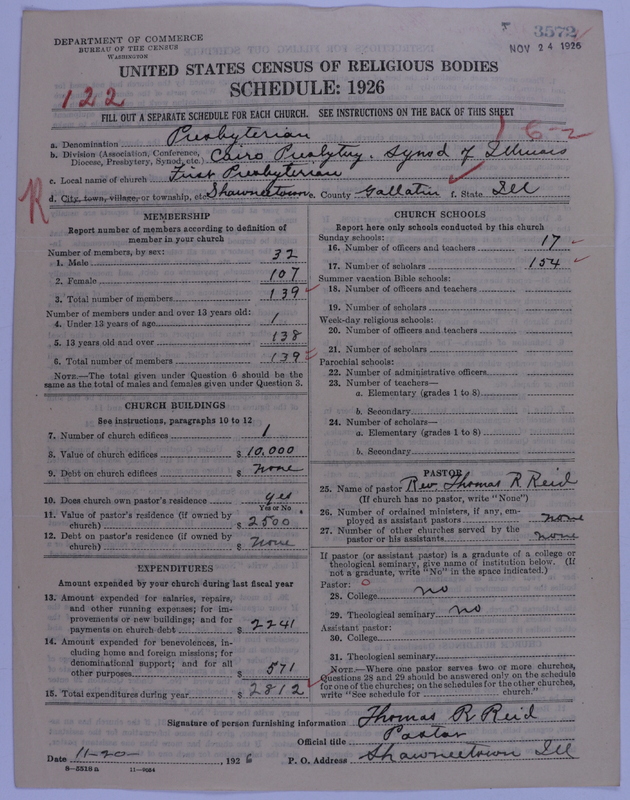 3572
NOV 24 1926
DEPARTMENT OF COMMERCE
BUREAU OF THE CENSUS
WASHINGTON
UNITED STATES CENSUS OF RELIGIOUS BODIES
SCHEDULE: 1926
122
FILL OUT A SEPARATE SCHEDULE FOR EACH CHURCH. SEE INSTRUCTIONS ON THE BACK OF THIS SHEET
16-2
a. Denomination Presbyterian
b. Division (Association, Conference, Diocese, Presbytery, Synod, etc.) Cairo Presbytry. Synod of Illinois
c. Local name of church First Presbyterian
R
d. City, town, village, or township, etc. Shawneetown e. County Gallatin f. State Ill
MEMBERSHIP
Report number of members according to definition of
member in your church
Number of members, by sex:
1. Male 32
2. Female 107
3. Total number of members 139
Number of members under and over 13 years old:
4. Under 13 years of age 1
5. 13 years old and over 138
6. Total number of members 139
NOTE.—The total given under Question 6 should be the
same as the total of males and females given under Question 3.
CHURCH BUILDINGS
See instructions, paragraphs 10 to 12
7. Number of church edifices 1
8. Value of church edifices $ 10,000
9. Debt on church edifices $ None
10. Does church own pastor's residence yes
Yes or No
11. Value of pastor's residence (if owned by
church) $ 2500
12. Debt on pastor's residence (if owned by
church) $ None
EXPENDITURES
Amount expended by your church during last fiscal year
13. Amount expended for salaries, repairs,
and other running expenses; for im-
provements or new buildings; and for
payments on church debt $ 2241
14. Amount expended for benevolences, in-
cluding home and foreign missions; for
denominational support; and for all
other purposes $ 571
15. Total expenditures during year $ 2812
CHURCH SCHOOLS
Report here only schools conducted by this church
Sunday schools:
16. Number of officers and teachers 17
17. Number of scholars 154
Summer vacation Bible schools:
18. Number of officers and teachers
19. Number of scholars
Week-day religious schools:
20. Number of officers and teachers
21. Number of scholars
Parochial schools:
22. Number of administrative officers
23. Number of teachers—
a. Elementary (grades 1 to 8)
b. Secondary
24. Number of scholars—
a. Elementary (grades 1 to 8)
b. Secondary
PASTOR
25. Name of pastor Rev Thomas R Reid
(If church has no pastor, write "None")
26. Number of ordained ministers, if any, em-
ployed as assistant pastors none
27. Number of other churches served by the
pastor or his assistants none
If pastor (or assistant pastor) is a graduate of a college or
theological seminary, give name of institution below. (If
not a graduate, write "No" in the space indicated.)
Pastor: 0
28. College no
29. Theological seminary no
Assistant pastor:
30. College
31. Theological seminary
NOTE.—Where one pastor serves two or more churches,
Questions 28 and 29 should be answered only on the schedule
for one of the churches; on the schedules for the other churches,
write "See schedule for church."
Signature of person furnishing information Thomas R Reid
Official title Pastor
Date 11-20-, 1926 P. O. Address Shawneetown Ill
8-5518a 11-9604